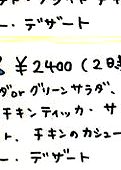 ー・デザート
￥2400(2日
ダorグリーンサラダ、
チキンティッカ・サ
ト、チキンのカシュー
ー・デザート